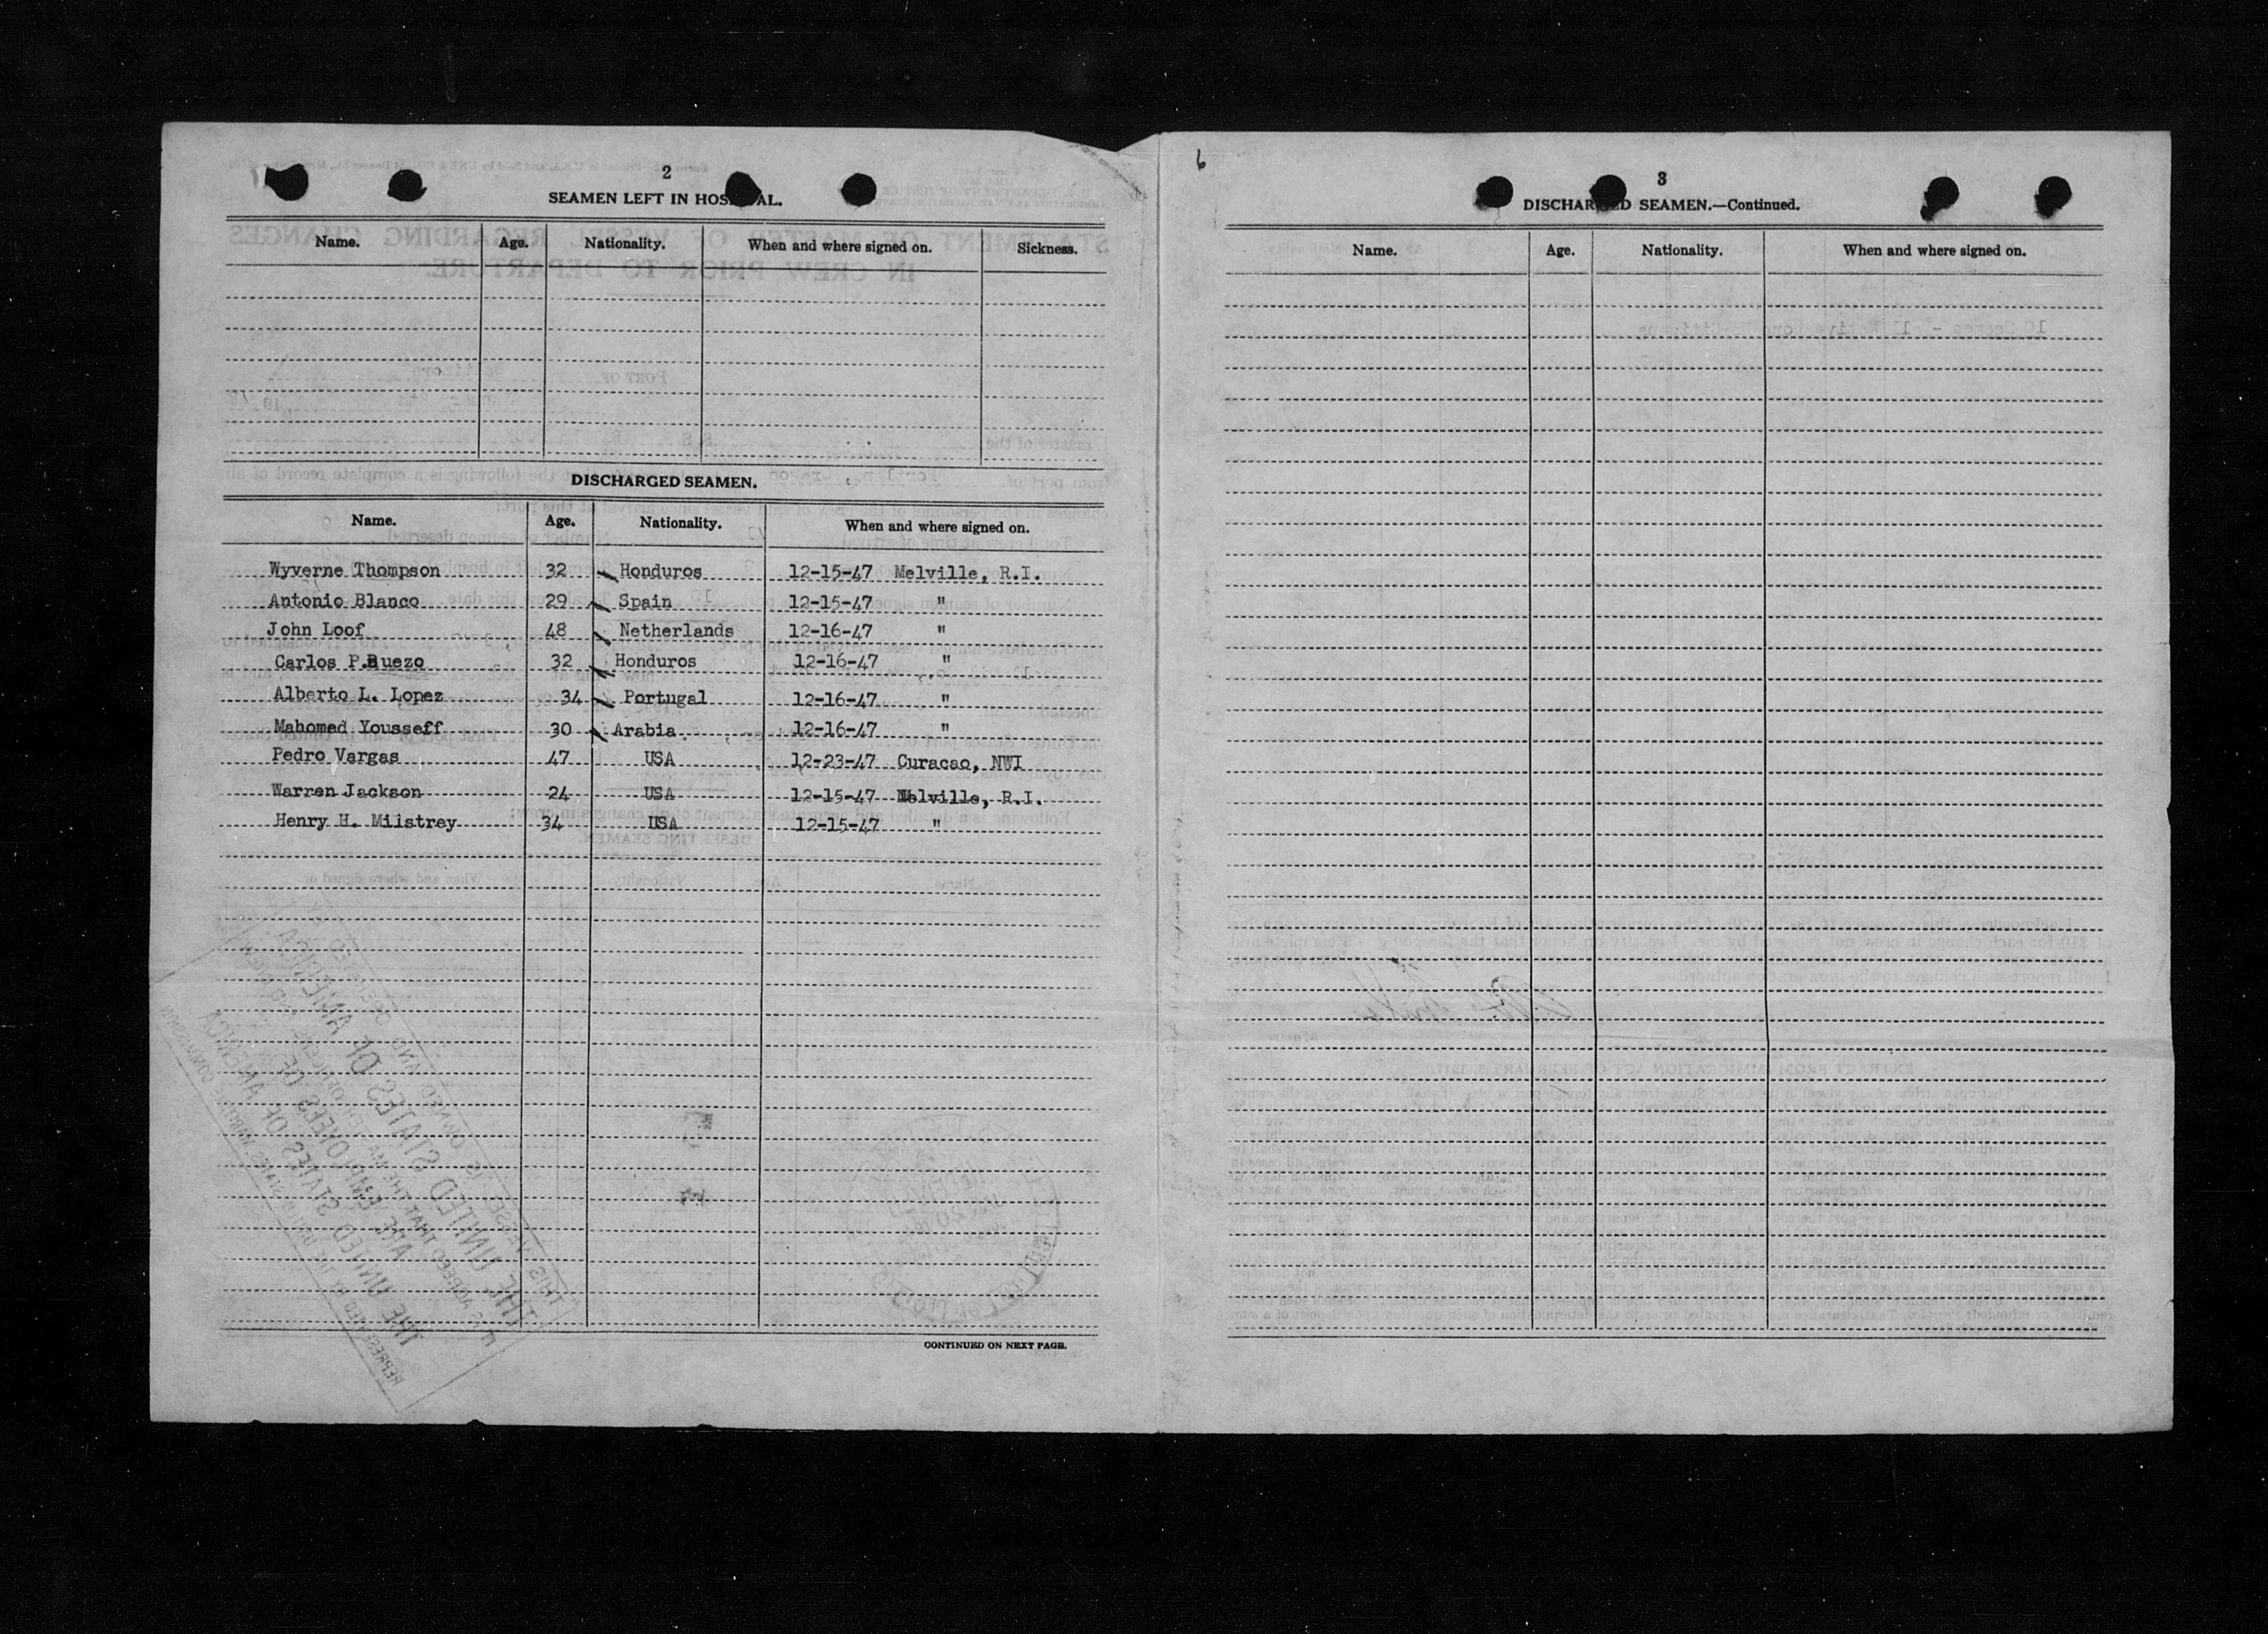 2
SEAMEN LEFT IN HOSPITAL.
Name. Age. Nationality. When and where signed on. Sickness.
DISCHARGED SEAMEN.
Name. Age. Nationality. When and where signed on.
Wyverne Thompson 32 Honduros 12-15-47 Melville, R.I.
Antonio Blanco 29 Spain 12-15-47 "
John Loof 48 Netherlands 12-16-47 "
Carlos P. 32 Honduros 12-16-47 "
Alberto L. Lopez 34 Portugal 12-16-47 "
Mahomed Yousseff 30 Arabia 12-16-47 "
Pedro Vargas 47 USA 12-23-47 Curacao, NWI
Warren Jackson 24 USA 12-15-47 Melville, R.I.
Henry H. Milstrey 34 USA 12-15-47 "
CONTINUED ON NEXT PAGE.
6
3
DISCHARGED SEAMEN.—Continued.
Name. Age. Nationality. When and where signed on.